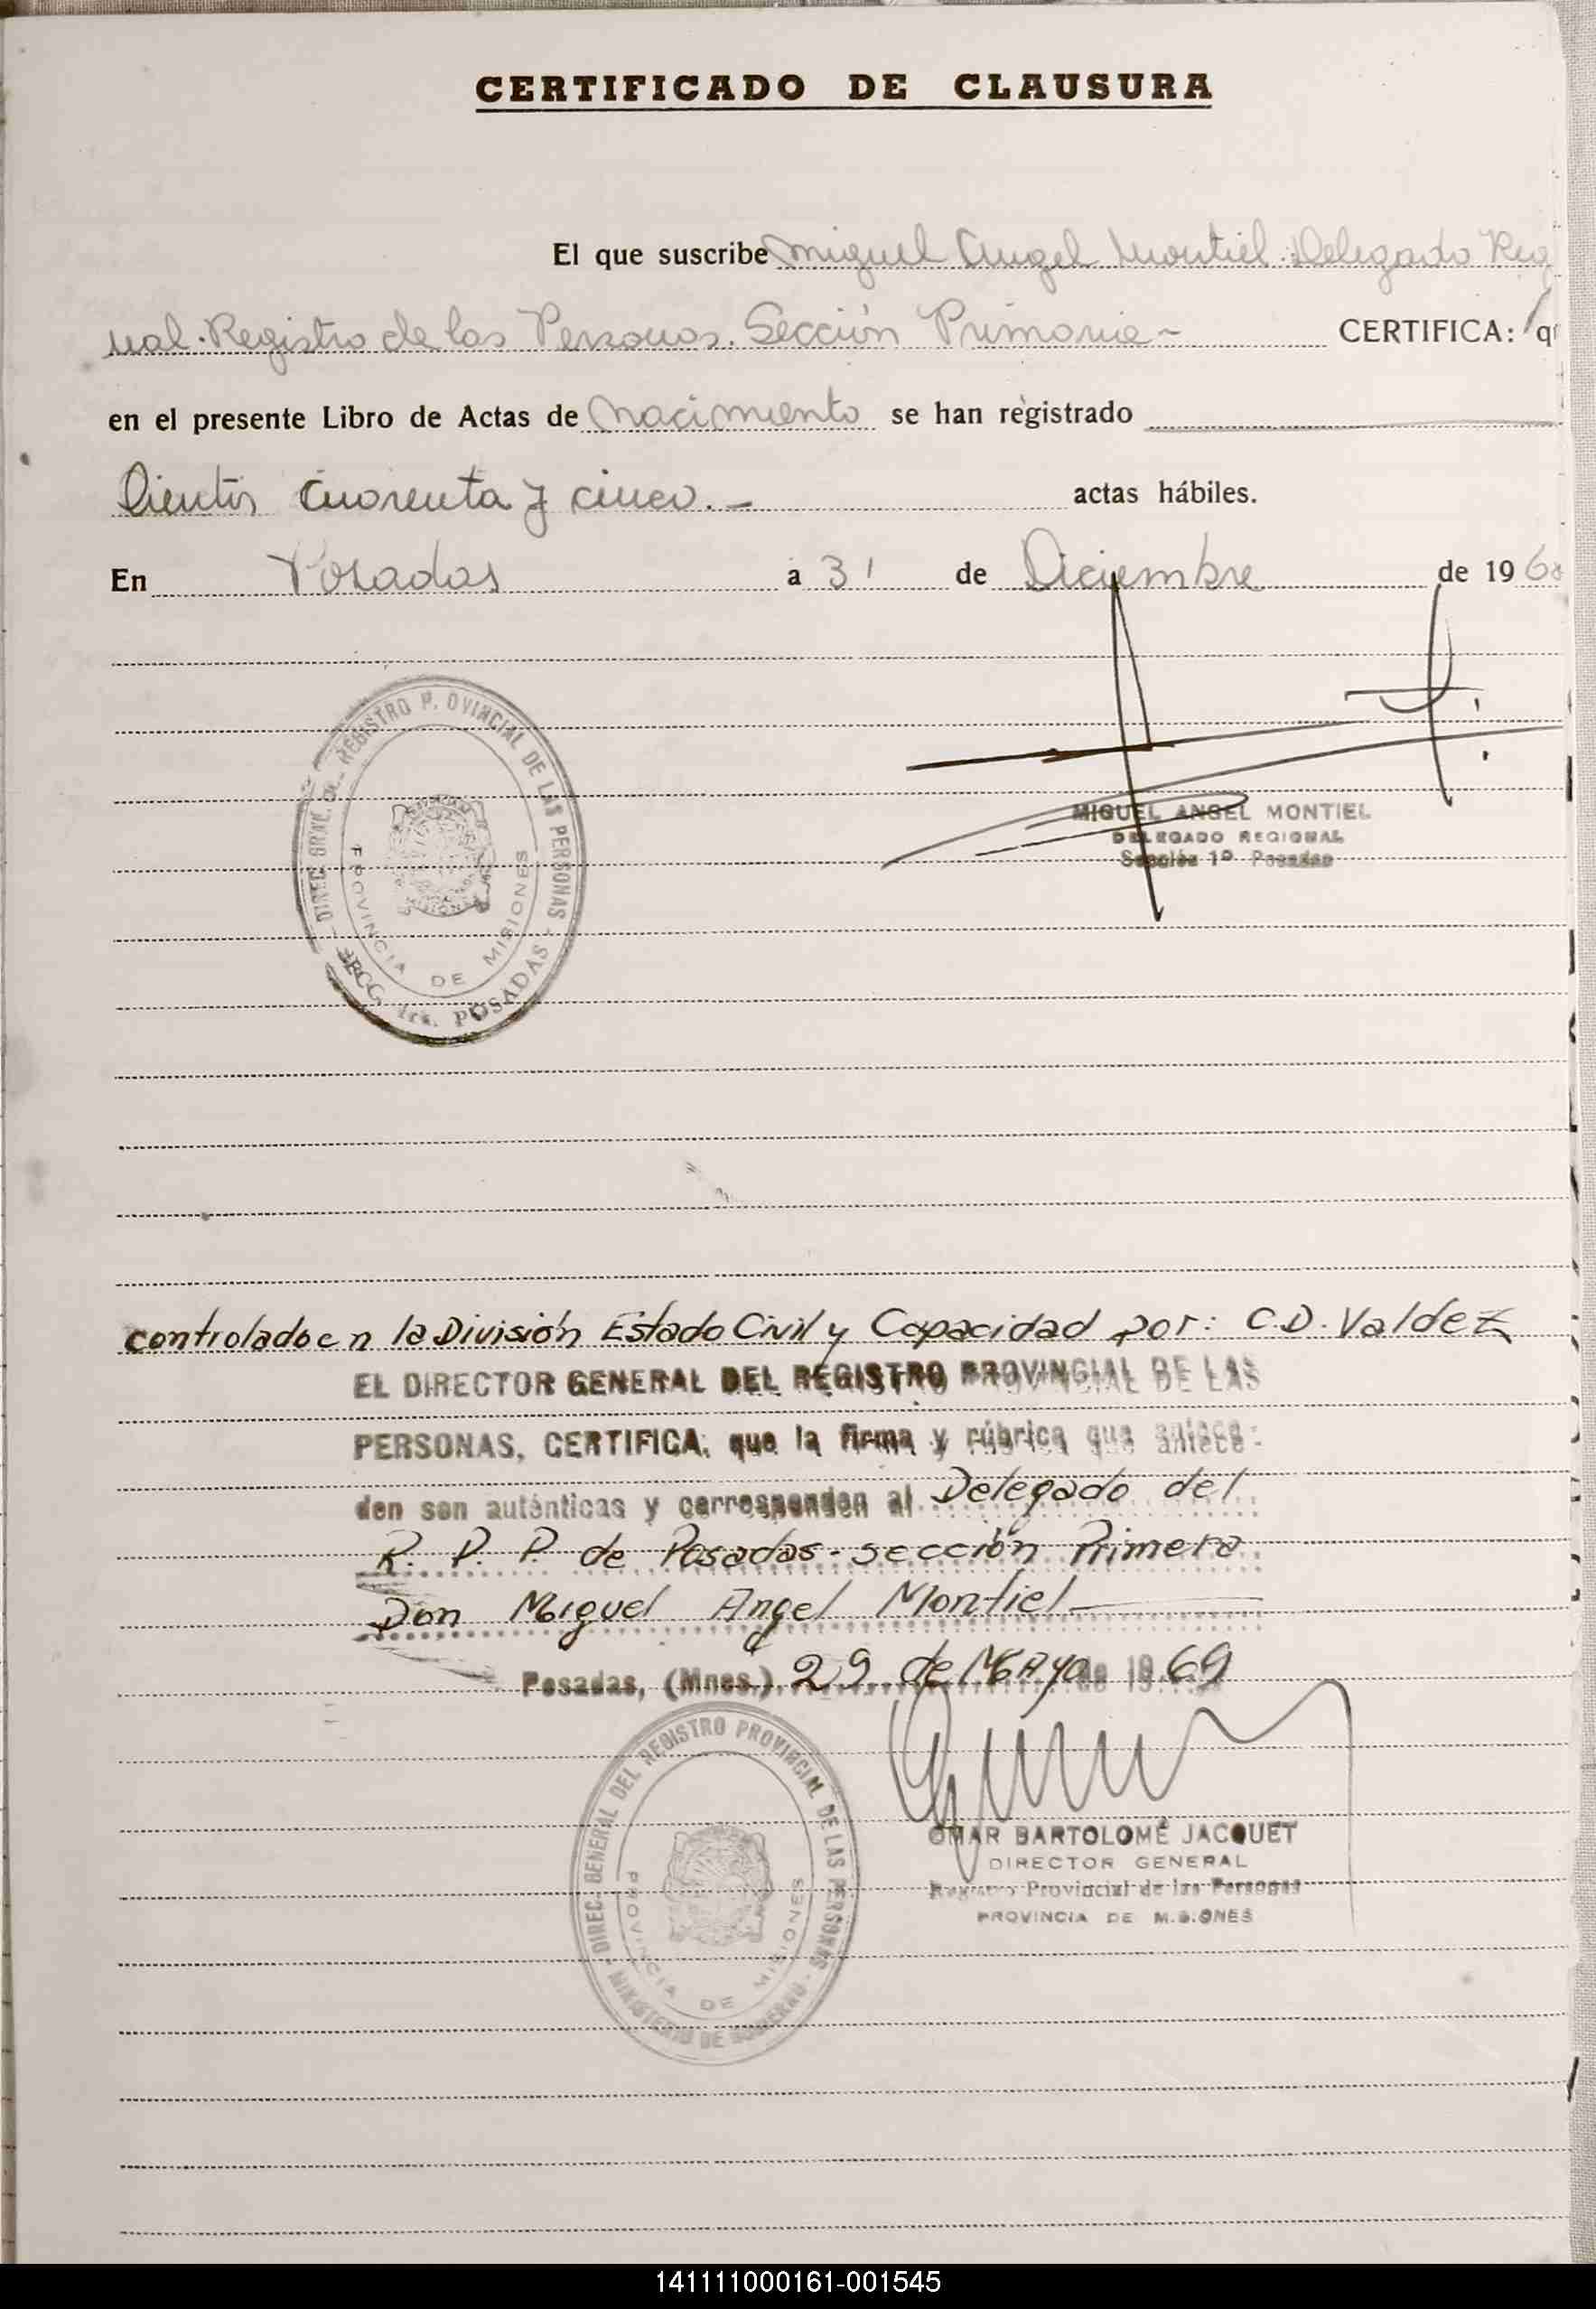 CERTIFICADO DE CLAUSURA
El que suscribe Miguel Angel Montiel. Delegado Reg
nal. Registro de las Personas. Sección Primaria - CERTIFICA: q
en el presente Libro de Actas de nacimiento se han registrado
Cientos Cuarenta y cinco. - actas hábiles.
En Posadas a 31 de Diciembre de 196
DIREC. GRAL. DEL REGISTRO P. OVINCIAL DE LAS PERSONAS - SECC. 1ra. POSADAS -
PROVINCIA DE MISIONES
MIGUEL ANGEL MONTIEL
DELEGADO REGIONAL
Sección 1ª Posadas
controlado en la División Estado Civil y Capacidad por: C.D. Valdez
EL DIRECTOR GENERAL DEL REGISTRO PROVINCIAL DE LAS
PERSONAS, CERTIFICA, que la firma y rúbrica que antece-
den son auténticas y corresponden al Delegado del
R. P. P. de Posadas - sección Primera
Don Miguel Angel Montiel
Posadas, (Mnes.) 29 de Mayo de 1969
DIREC. GENERAL DEL REGISTRO PROVINCIAL DE LAS PERSONAS - MINISTERIO DE GOBIERNO -
PROVINCIA DE MISIONES
OMAR BARTOLOMÉ JACQUET
DIRECTOR GENERAL
Registro Provincial de las Personas
PROVINCIA DE MISIONES
141111000161-001545